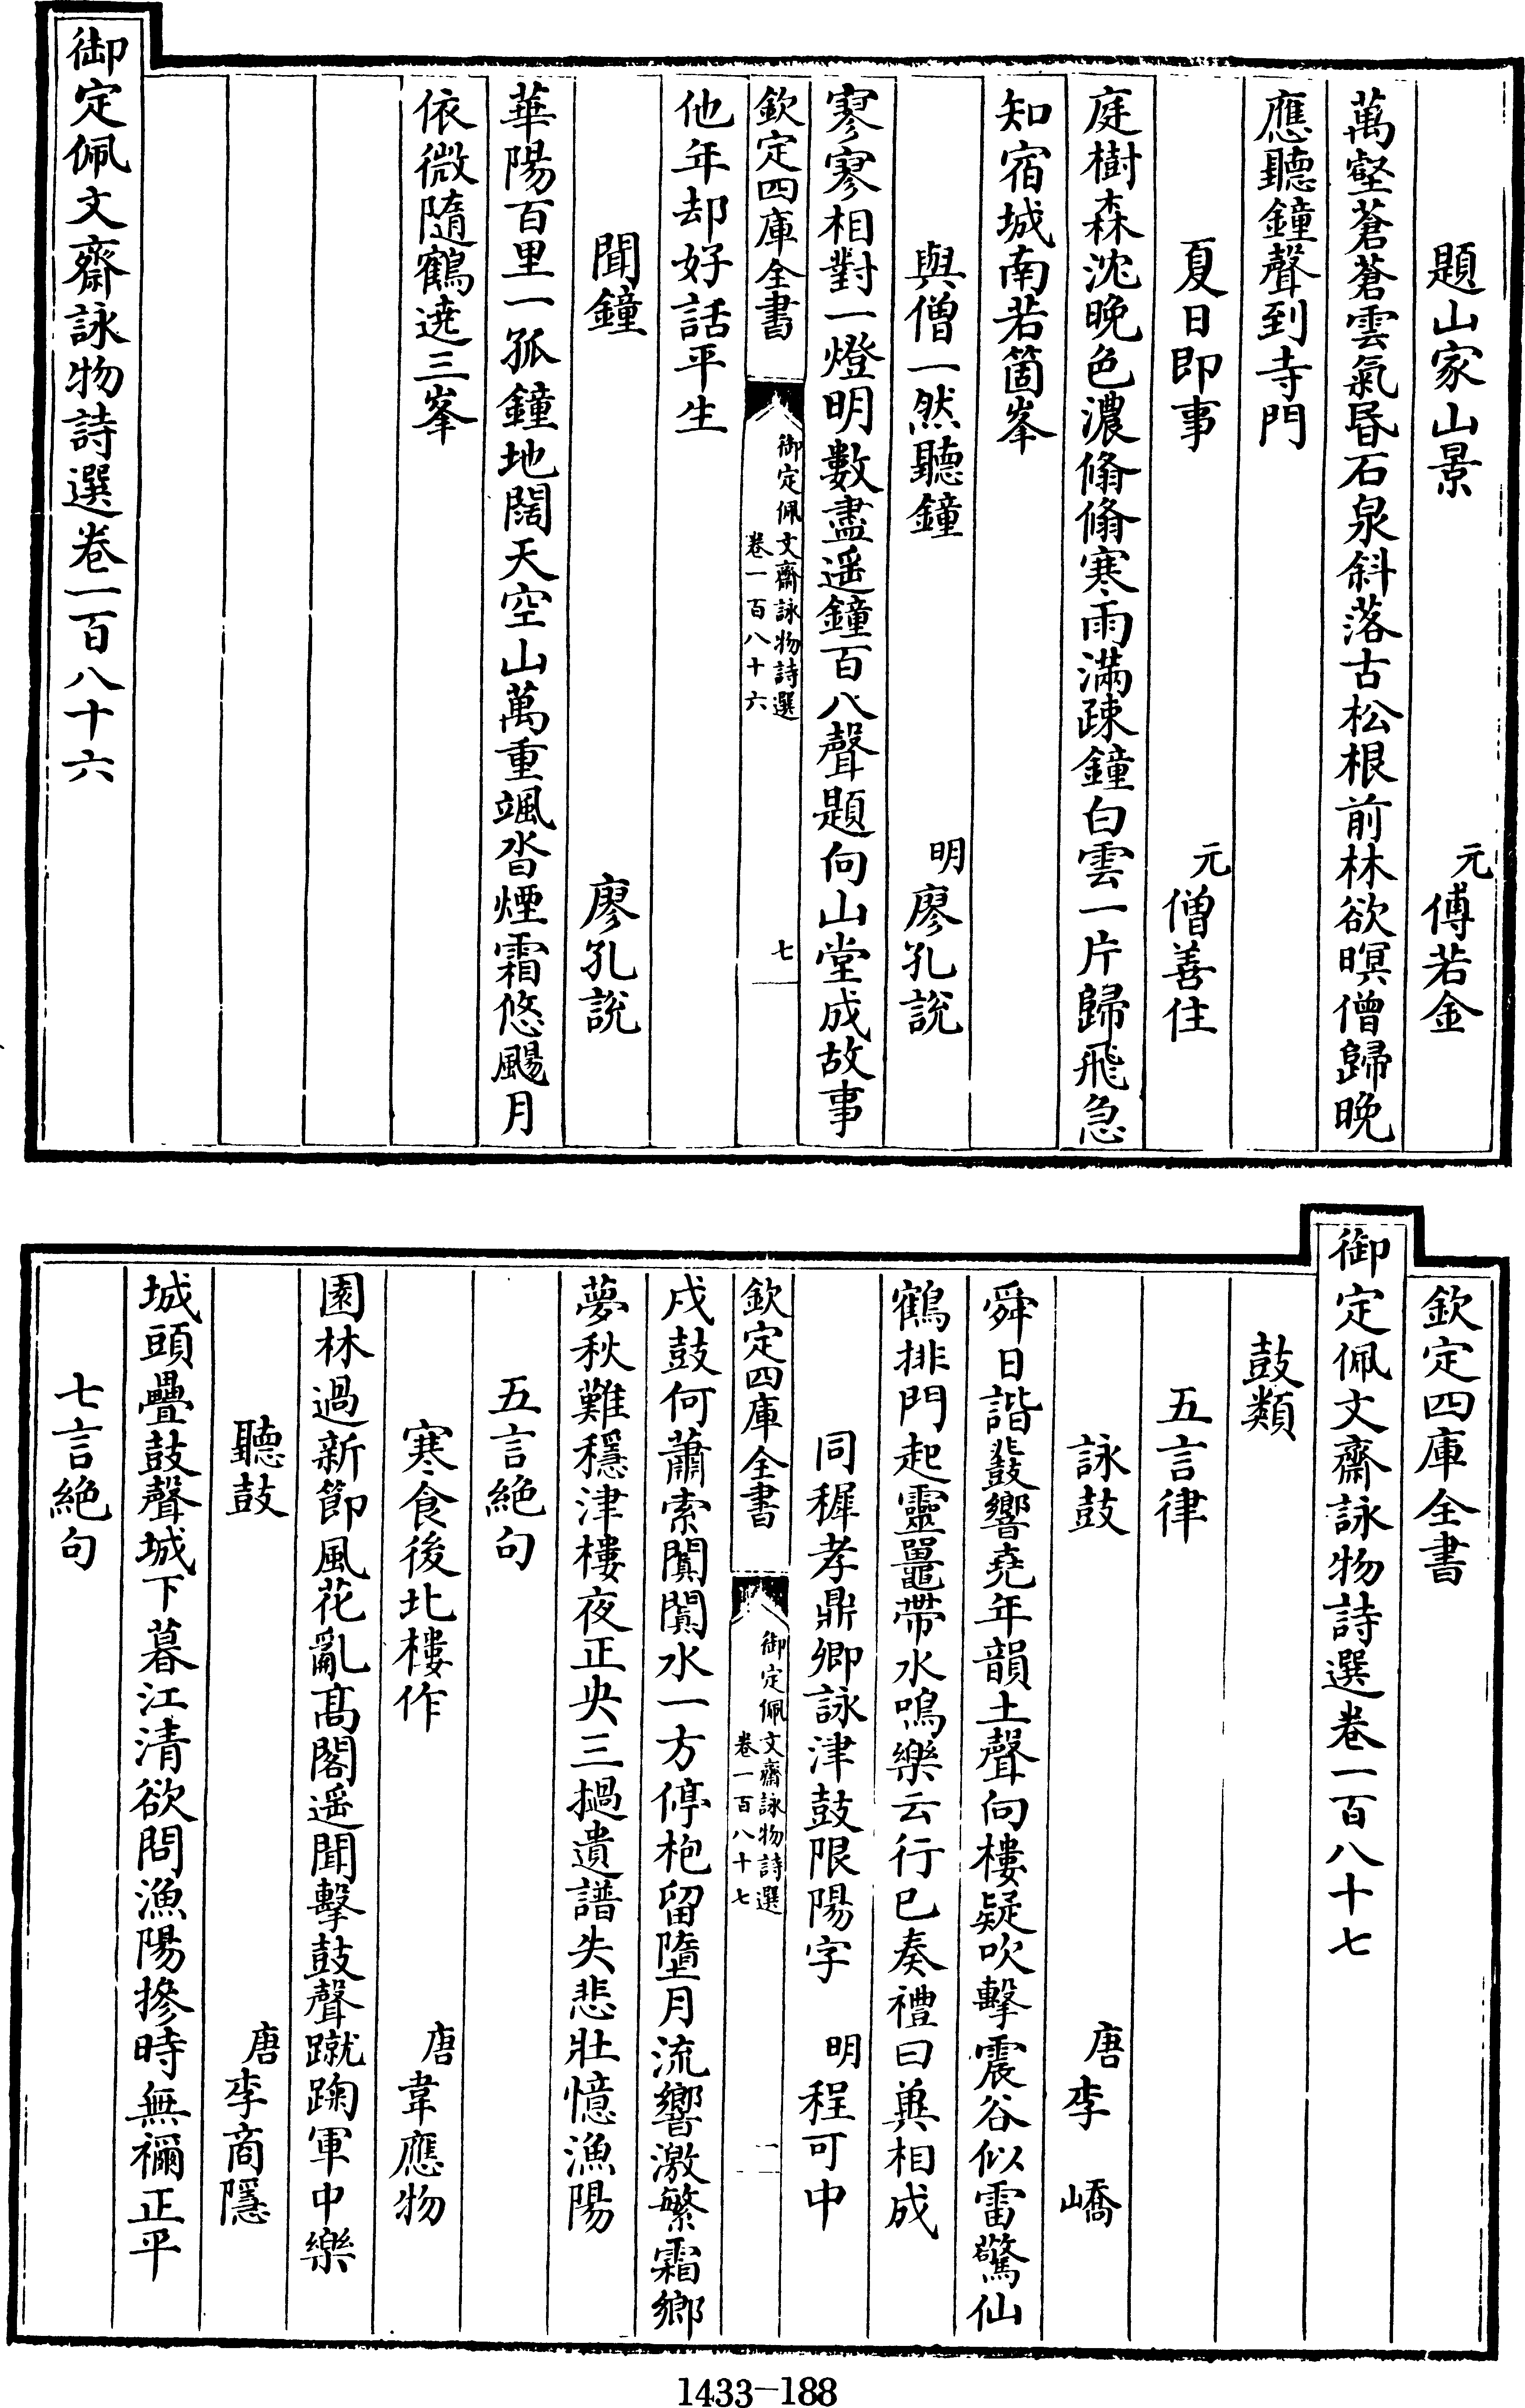 題山家山景　元傅若金
萬壑蒼蒼雲氣昏石泉斜落古松根前林欲暝僧歸晚
應聽鐘聲到寺門
夏日即事　元僧善住
庭樹森沈晚色濃翛翛寒雨滿疎鐘白雲一片歸飛急
知宿城南若箇峯
與僧一然聽鐘　明廖孔說
寥寥相對一燈明數盡遥鐘百八聲題向山堂成故事
欽定四庫全書　御定佩文齋詠物詩選　卷一百八十六　七
他年却好話平生
聞鐘　廖孔說
華陽百里一孤鐘地闊天空山萬重颯沓煙霜悠颺月
依微隨鶴遶三峯
御定佩文齋詠物詩選卷一百八十六
欽定四庫全書
御定佩文齋詠物詩選卷一百八十七
鼓類
五言律
詠鼓　唐李嶠
舜日諧鼖響堯年韻土聲向樓疑吹擊震谷似雷驚仙
鶴排門起靈鼉帶水鳴樂云行已奏禮曰兾相成
同穉孝鼎卿詠津鼓限陽字　明程可中
欽定四庫全書　御定佩文齋詠物詩選　卷一百八十七　一
戍鼓何蕭索闐闐水一方停枹留墮月流響激繁霜鄉
夢秋難穩津樓夜正央三撾遺譜失悲壯憶漁陽
五言絕句
寒食後北樓作　唐韋應物
園林過新節風花亂髙閣遥聞擊鼓聲蹴踘軍中樂
聽鼓　唐李商隱
城頭疊鼓聲城下暮江清欲問漁陽摻時無禰正平
七言絕句
1433—188